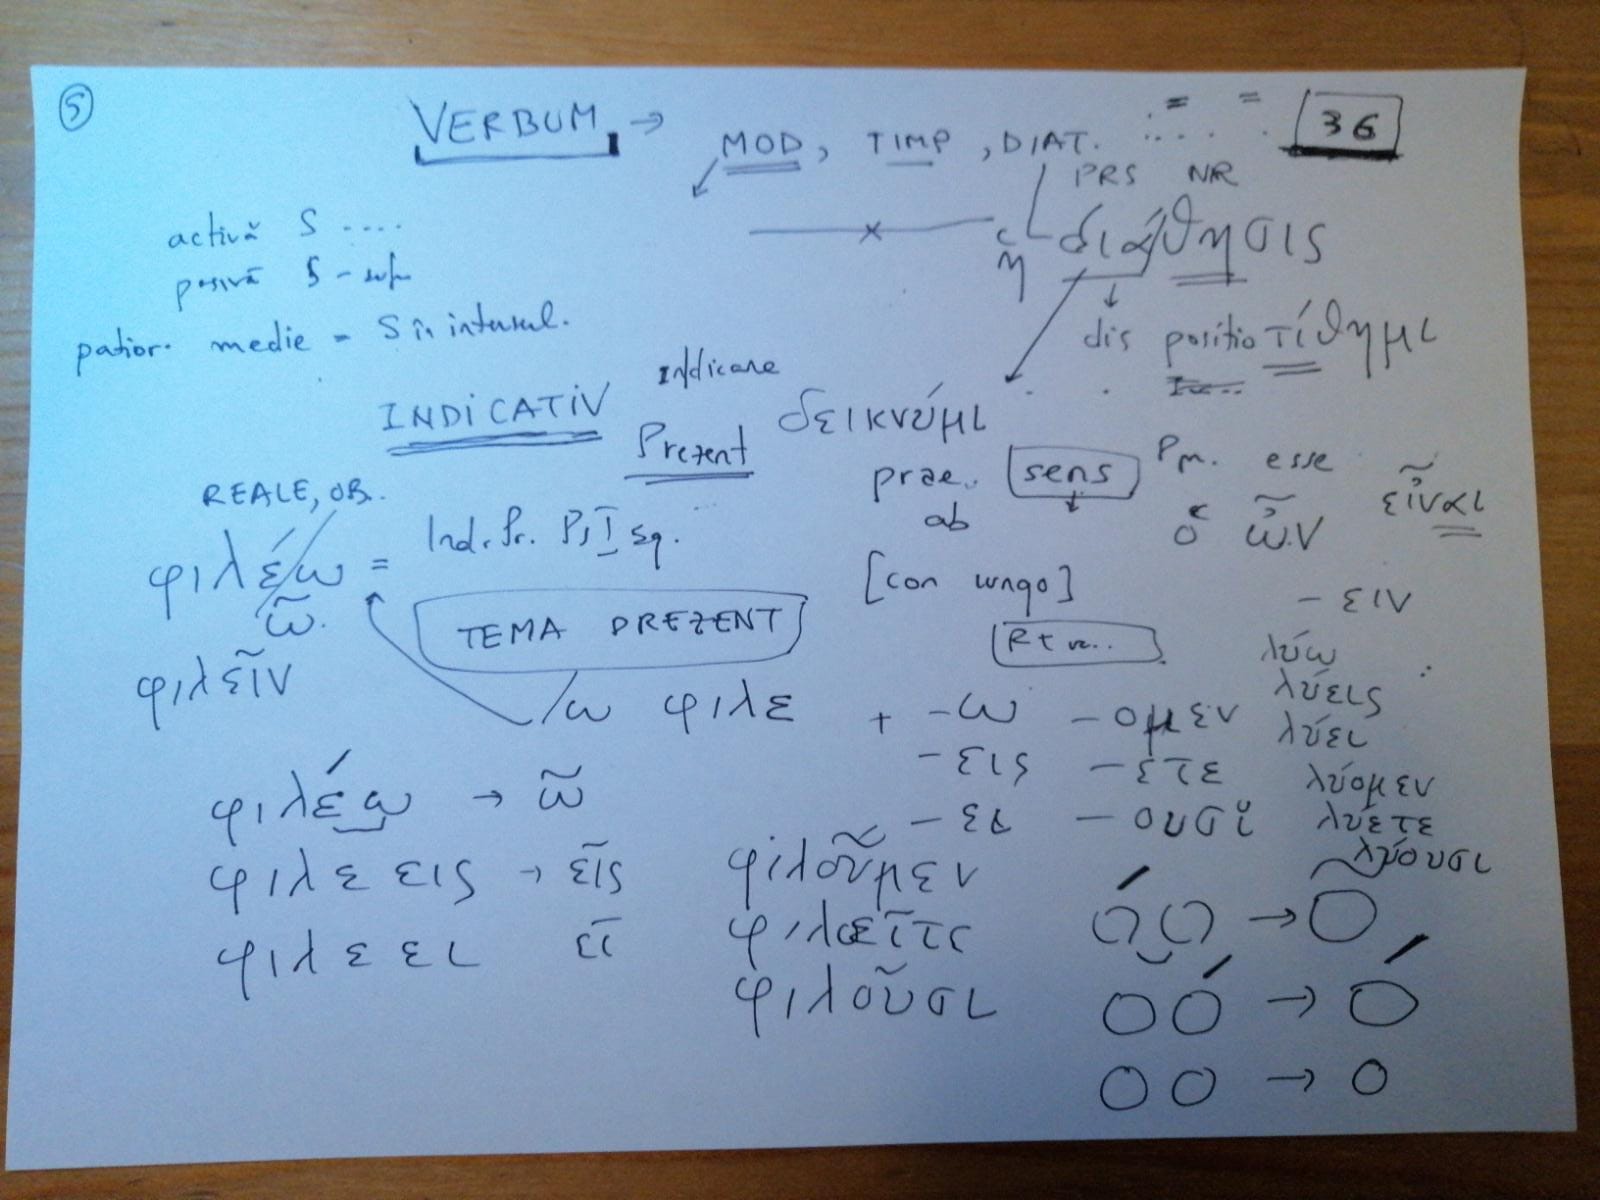 5
VERBUM → MOD, TIMP, DIAT. 36
PRS NR
activă S ....
ἡ διάθησις
pasivă S -
patior. medie = S în
dis positio τίθημι
Indicare
INDICATIV
δεικνύμι
Prezent
prae. sens esse
ab ὁ ὤν εἶναι
REALE, OB.
φιλέω = Ind. Pr. Ps I sg.
ῶ.
[con iungo]
- ειν
TEMA PREZENT
φιλεῖν
λύω
λύεις
λύει
λύομεν
λύετε
λύουσι
φιλε + -ω -ομεν
-εις -ετε
-ει -ουσι
φιλέω → ῶ
φιλεεις → εῖς
φιλεει εῖ
φιλοῦμεν
φιλεῖτε
φιλοῦσι